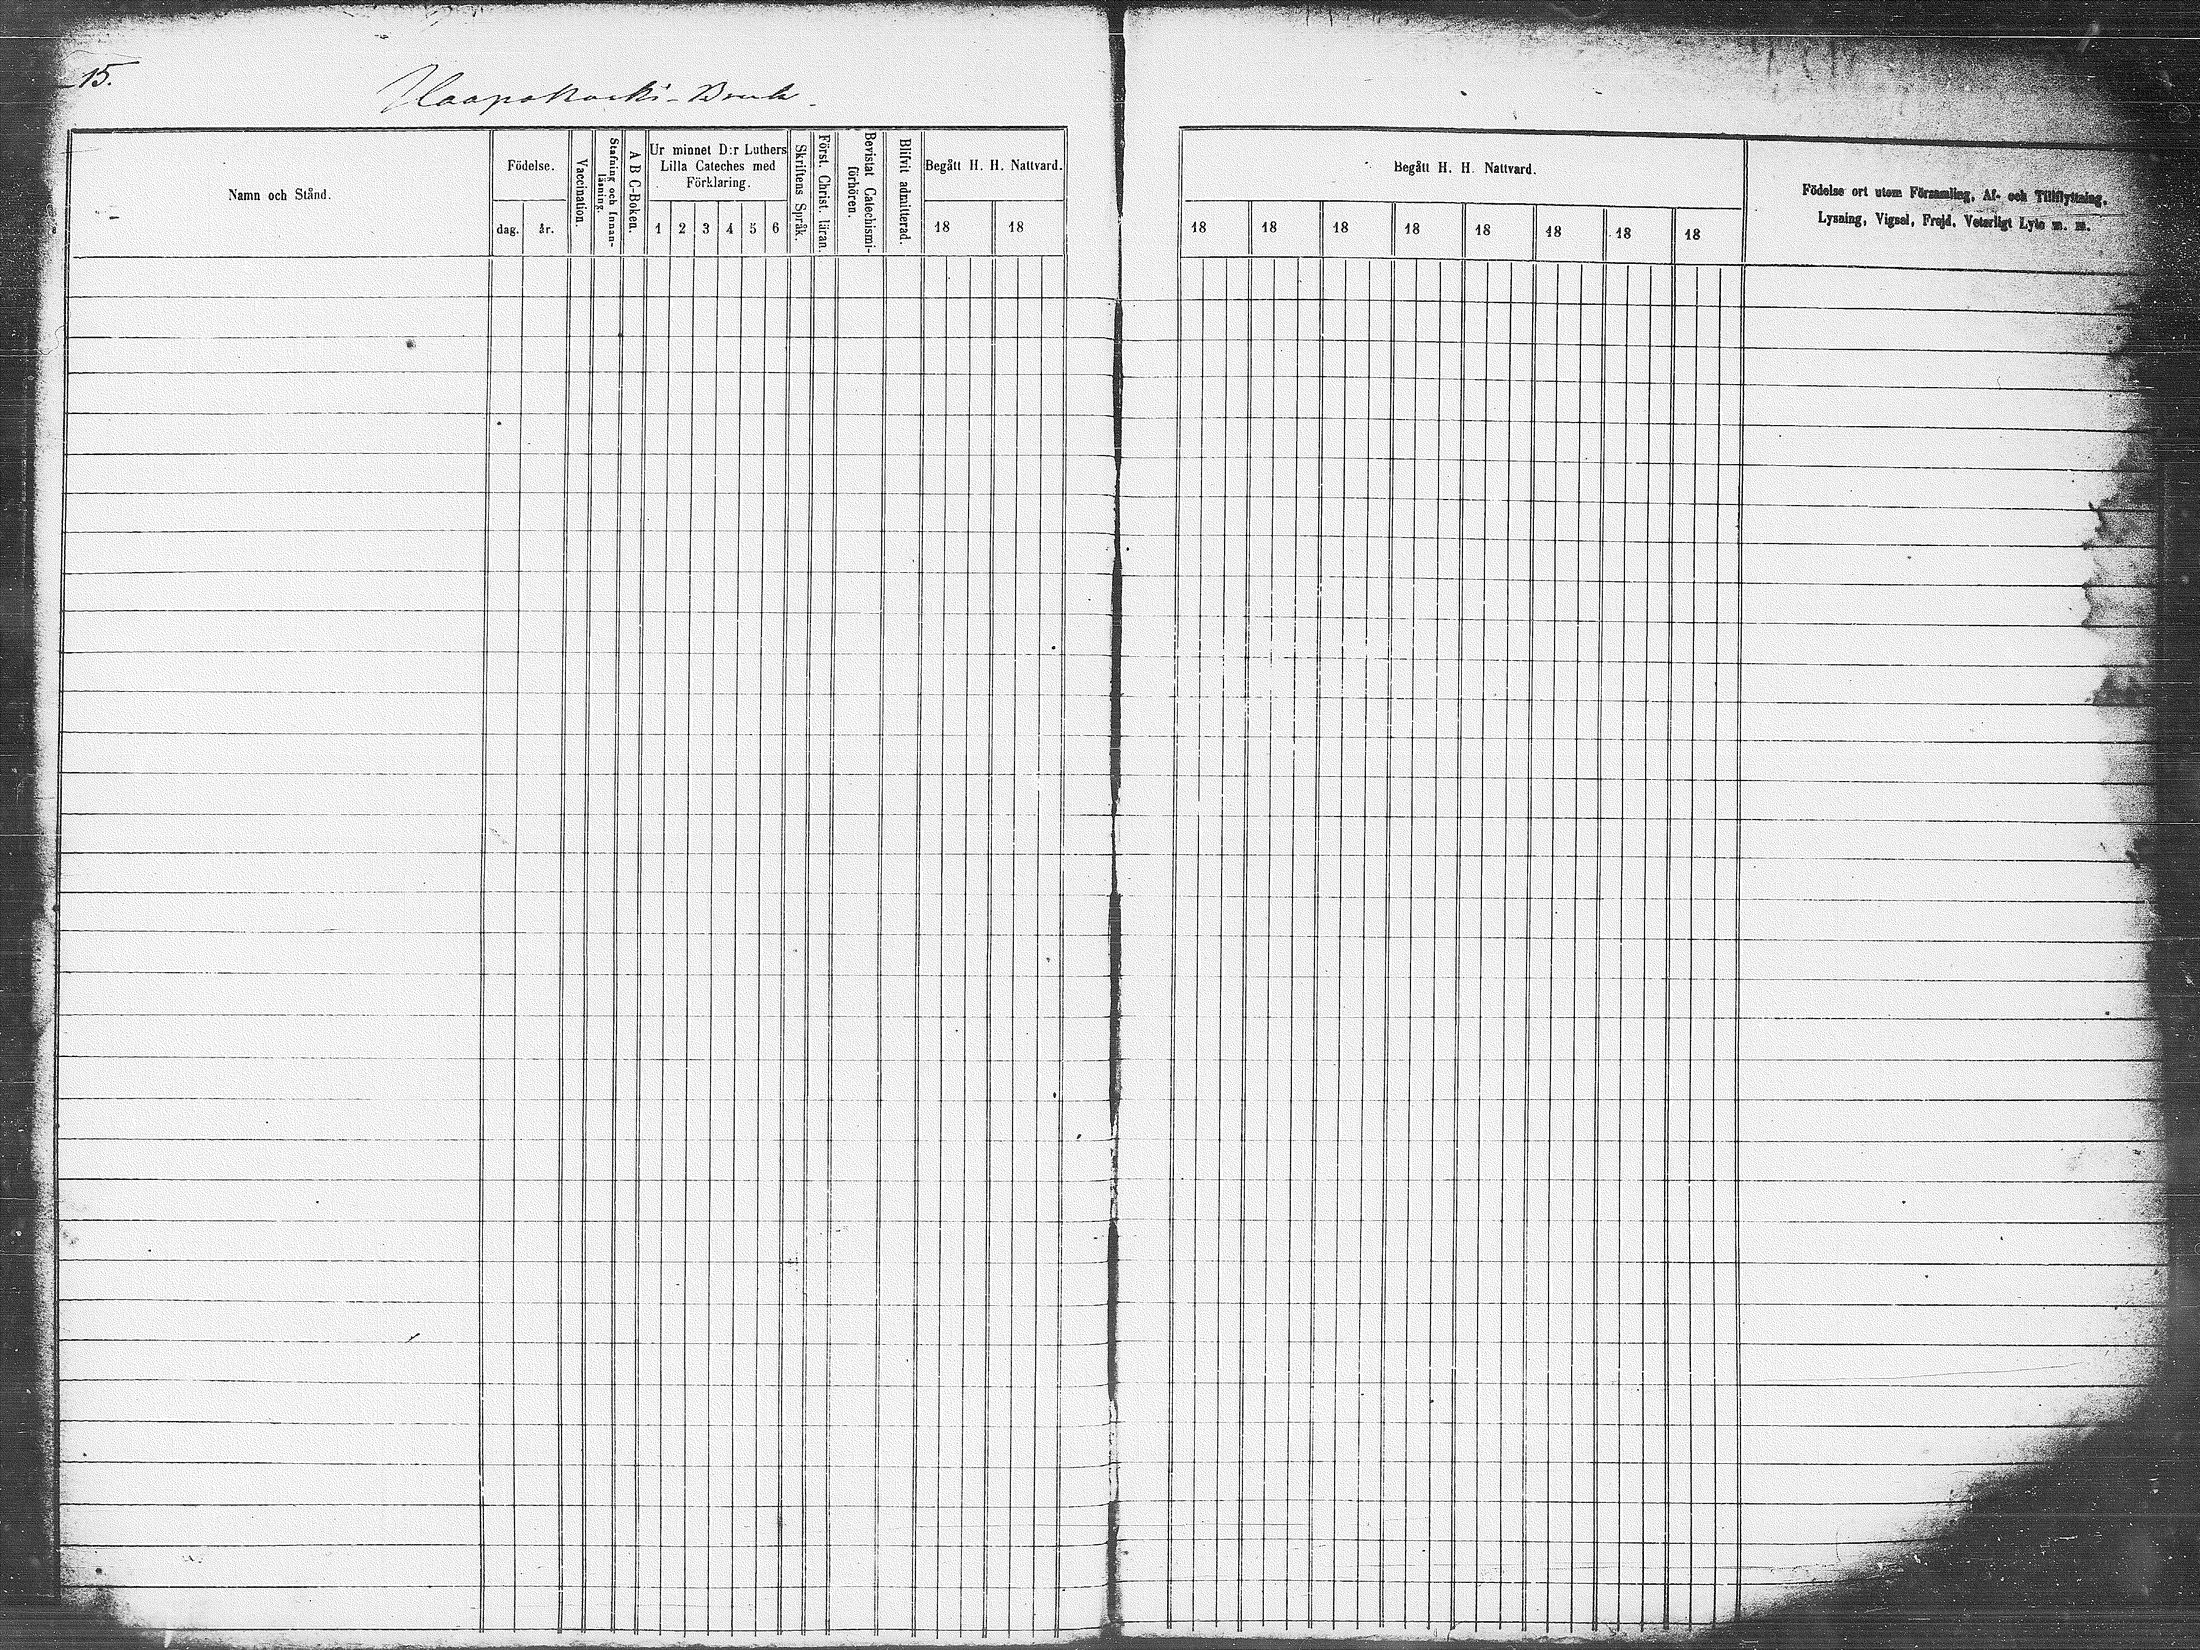 15.
Haapakoski-Bruk.
Namn och Stånd.
Födelse.
dag.
år.
Vaccination.
Stafning och Innan-
läsning.
A B C-Boken.
Ur minnet D:r Luthers
Lilla Cateches med
Förklaring.
1 2 3 4 5 6
Skriftens Språk.
Först. Christ. läran.
Bevistat Catechismi-
förhören.
Blifvit admitterad.
Begått H. H. Nattvard.
18 18
Begått H. H. Nattvard.
18 18 18 18 18 18 18 18
Födelse ort utom Församling, Af- och Tillflyttning,
Lysning, Vigsel, Frejd, Veterligt Lyte m. m.